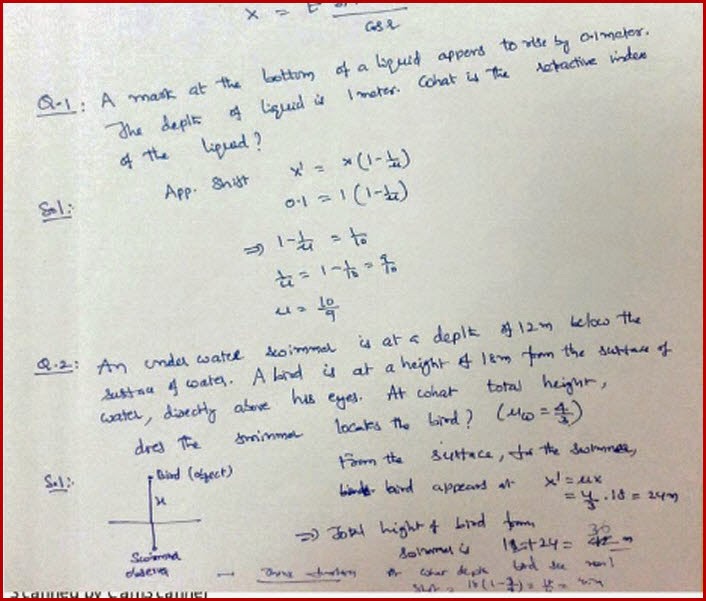 x = t
Cos r
Q-1: A mark at the bottom of a liquid appers to rise by 0.1 meter.
The depth of liquid is 1 meter. What is the refractive index
of the liquid?
Sol: App. Shift x' = x(1-1/μ)
0.1 = 1(1-1/μ)
⇒ 1-1/μ = 1/10
1/μ = 1-1/10 = 9/10
μ = 10/9
Q.2: An under water swimmer is at a depth of 12m below the
surface of water. A bird is at a height of 18m from the surface of
water, directly above his eyes. At what total height,
does the swimmer locates the bird? (μω = 4/3)
Sol: From the surface, for the swimmer,
Bird (object)
bird appears at x' = μx
x
= 4/3 . 18 = 24m
⇒ Total hight of bird from
Swimmer is 12+24 = 36 m
Swimmer
observer